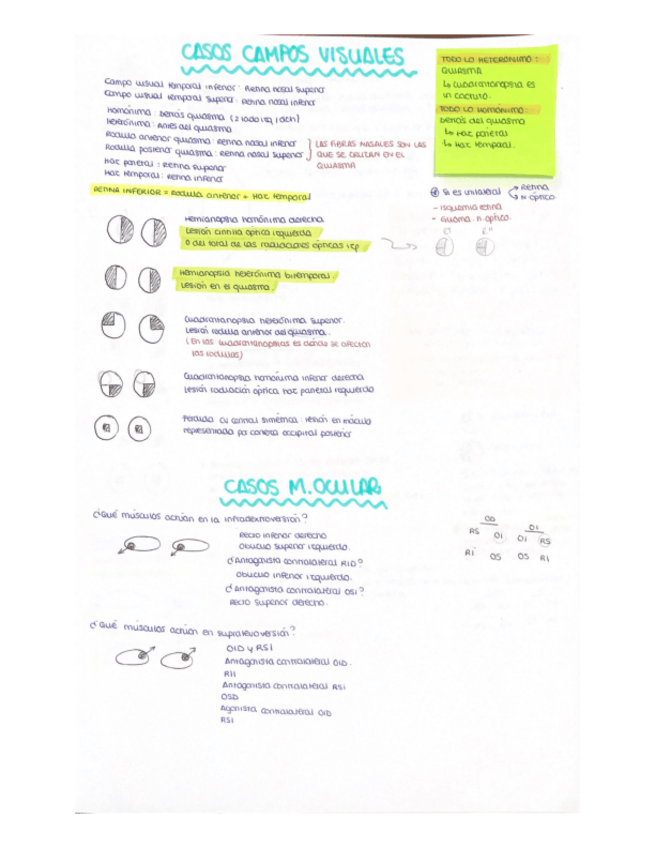 CASOS CAMPOS VISUALES
Campo visual temporal inferior: Retina nasal superior
Campo visual temporal superior: Retina nasal inferior
Homónima: Detrás quiasma (2 lado izq / dch)
Heterónima: Antes del quiasma
Rodilla anterior quiasma: Retina nasal inferior
Rodilla posterior quiasma: Retina nasal superior
Haz parietal: Retina superior
Haz temporal: Retina inferior
LAS FIBRAS NASALES SON LAS
QUE SE CRUZAN EN EL
QUIASMA
RETINA INFERIOR = Rodilla anterior + Haz temporal
TODO LO HETERÓNIMO:
QUIASMA
↳ cuadrantanopsia es
un cacito.
TODO LO HOMÓNIMO:
Detrás del quiasma
↳ Haz parietal
↳ Haz temporal.
Si es unilateral → Retina
→ N. óptico
- Isquemia retina
- Glioma n. óptico.
Hemianopsia homónima derecha
Lesión cintilla óptica izquierda
O del total de las radiaciones ópticas izq
Hemianopsia heterónima bitemporal.
Lesión en el quiasma.
Cuadrantanopsia heterónima superior.
Lesión rodilla anterior del quiasma.
(En las cuadrantanopsias es donde se afectan
las rodillas)
Cuadrantanopsia homónima inferior derecha
Lesión radiación óptica haz parietal izquierdo
Perdida CV central simétrica: lesión en mácula
representada por corteza occipital posterior
CASOS M.OCULAR
¿Qué músculos actúan en la infradextroversión?
Recto inferior derecho
Oblicuo superior izquierdo.
¿Antagonista contralateral RID?
Oblicuo inferior izquierdo.
¿Antagonista contralateral OSI?
Recto superior derecho.
OD OI
RS OI OI RS
RI OS OS RI
¿Qué músculos actúan en supralevoversión?
OID y RSI
Antagonista contralateral OID.
RII
Antagonista contralateral RSI
OSD
Agonista contralateral OID
RSI